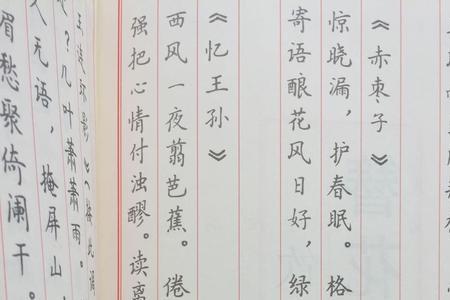 《赤枣子》
惊晓漏，护春眠。格
寄语酿花风日好，绿
《忆王孙》
西风一夜翦芭蕉。倦
强把心情付浊醪。读离
连环影》（按此调
？几叶萧萧雨。
人无语，掩屏山，
眉愁聚倚阑干。